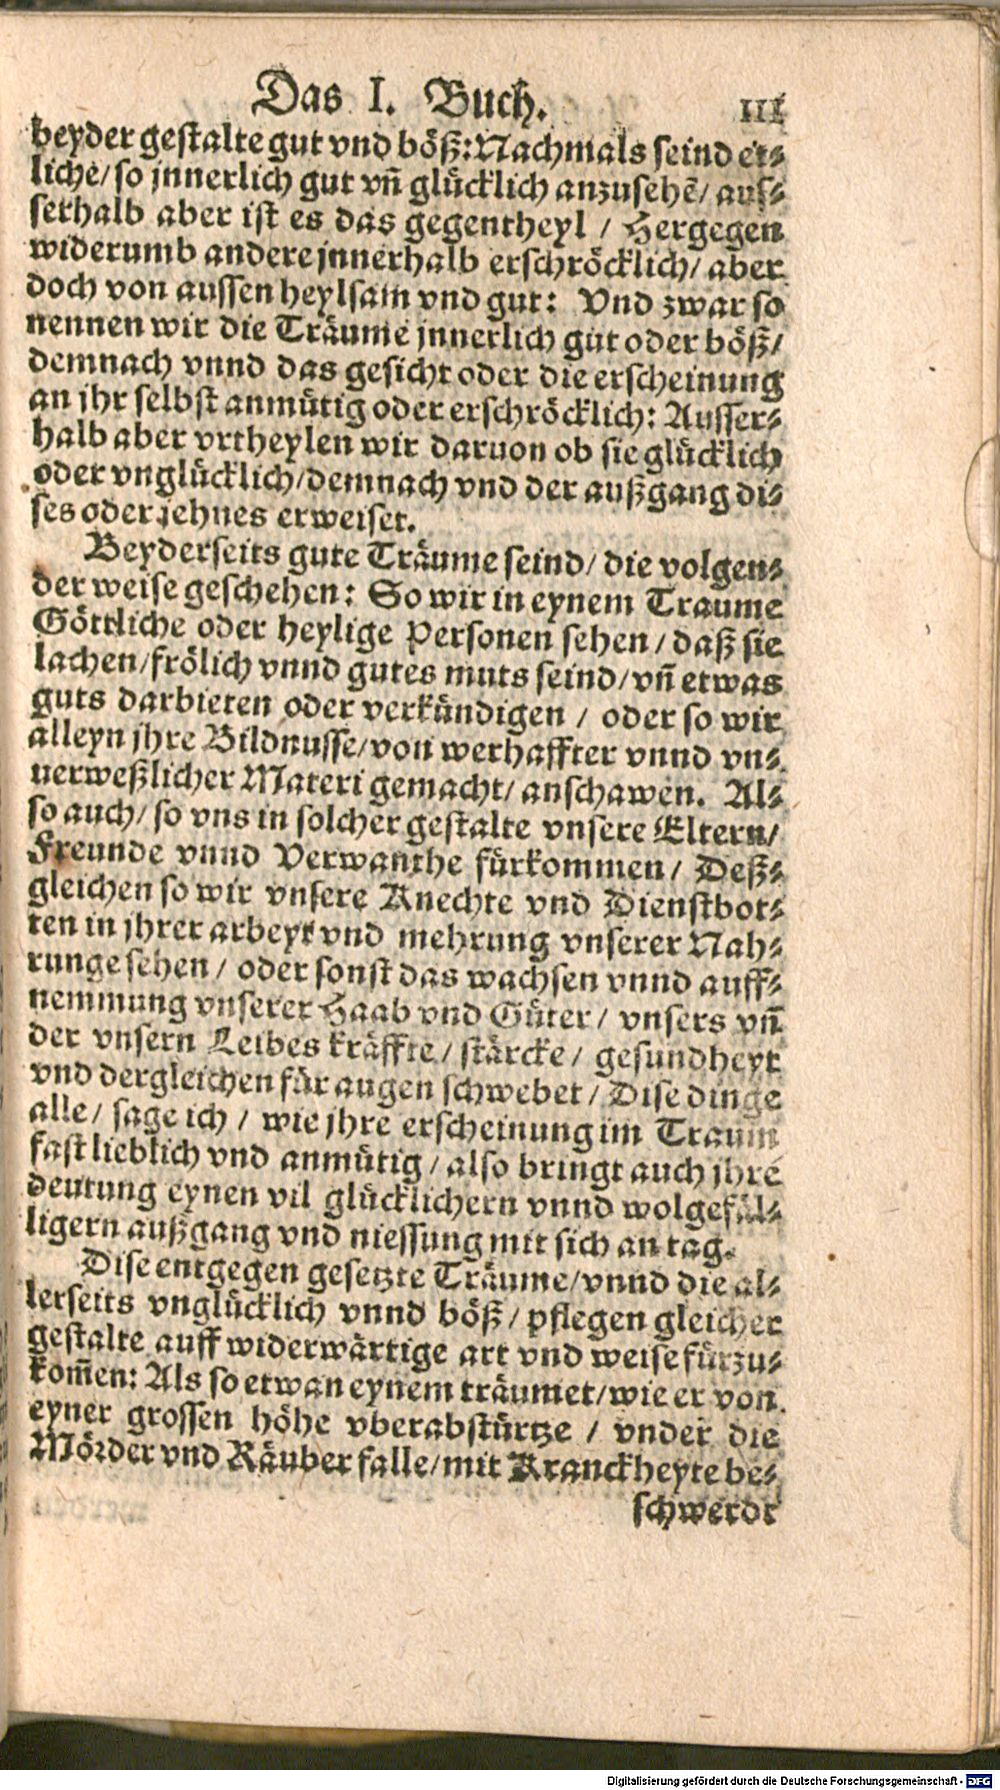 Das I. Buch. III
beyder gestalte gut vnd böß: Nachmals seind et⸗
liche/ so jnnerlich gut vñ glücklich anzusehẽ/ aus⸗
serhalb aber ist es das gegentheyl / Hergegen
widerumb andere jnnerhalb erschröcklich/ aber
doch von aussen heylsam vnd gut: Vnd zwar so
nennen wir die Träume jnnerlich gut oder böß/
demnach vnnd das gesicht oder die erscheinung
an jhr selbst anmütig oder erschröcklich: Ausser⸗
halb aber vrtheylen wir daruon ob sie glücklich
oder vnglücklich/ demnach vnd der außgang di⸗
ses oder jehnes erweiset.
Beyderseits gute Träume seind/ die volgen⸗
der weise geschehen: So wir in eynem Traume
Göttliche oder heylige Personen sehen / daß sie
lachen/ frölich vnnd gutes muts seind/ vñ etwas
guts darbieten oder verkündigen / oder so wir
alleyn jhre Bildnusse/ von werhaffter vnnd vn⸗
uerweßlicher Materi gemacht/ anschawen. Al⸗
so auch/ so vns in solcher gestalte vnsere Eltern/
Freunde vnnd Verwanthe fürkommen / Deß⸗
gleichen so wir vnsere Knechte vnd Dienstbot⸗
ten in jhrer arbeyt vnd mehrung vnserer Nah⸗
runge sehen / oder sonst das wachsen vnnd auff⸗
nemmung vnserer Haab vnd Güter / vnsers vñ
der vnsern Leibes kräffte / stärcke / gesundheyt
vnd dergleichen für augen schwebet / Dise dinge
alle / sage ich / wie jhre erscheinung im Traum
fast lieblich vnd anmütig / also bringt auch jhre
deutung eynen vil glücklichern vnnd wolgefäl⸗
ligern außgang vnd niessung mit sich an tag.
Dise entgegen gesetzte Träume/ vnnd die al⸗
lerseits vnglücklich vnnd böß / pflegen gleicher
gestalte auff widerwärtige art vnd weise fürzu⸗
kom̃en: Als so etwan eynem träumet/ wie er von
eyner grossen höhe vberabstürtze / vnder die
Mörder vnd Räuber falle/ mit Kranckheyte be⸗
schwerdt
Digitalisierung gefördert durch die Deutsche Forschungsgemeinschaft - DFG